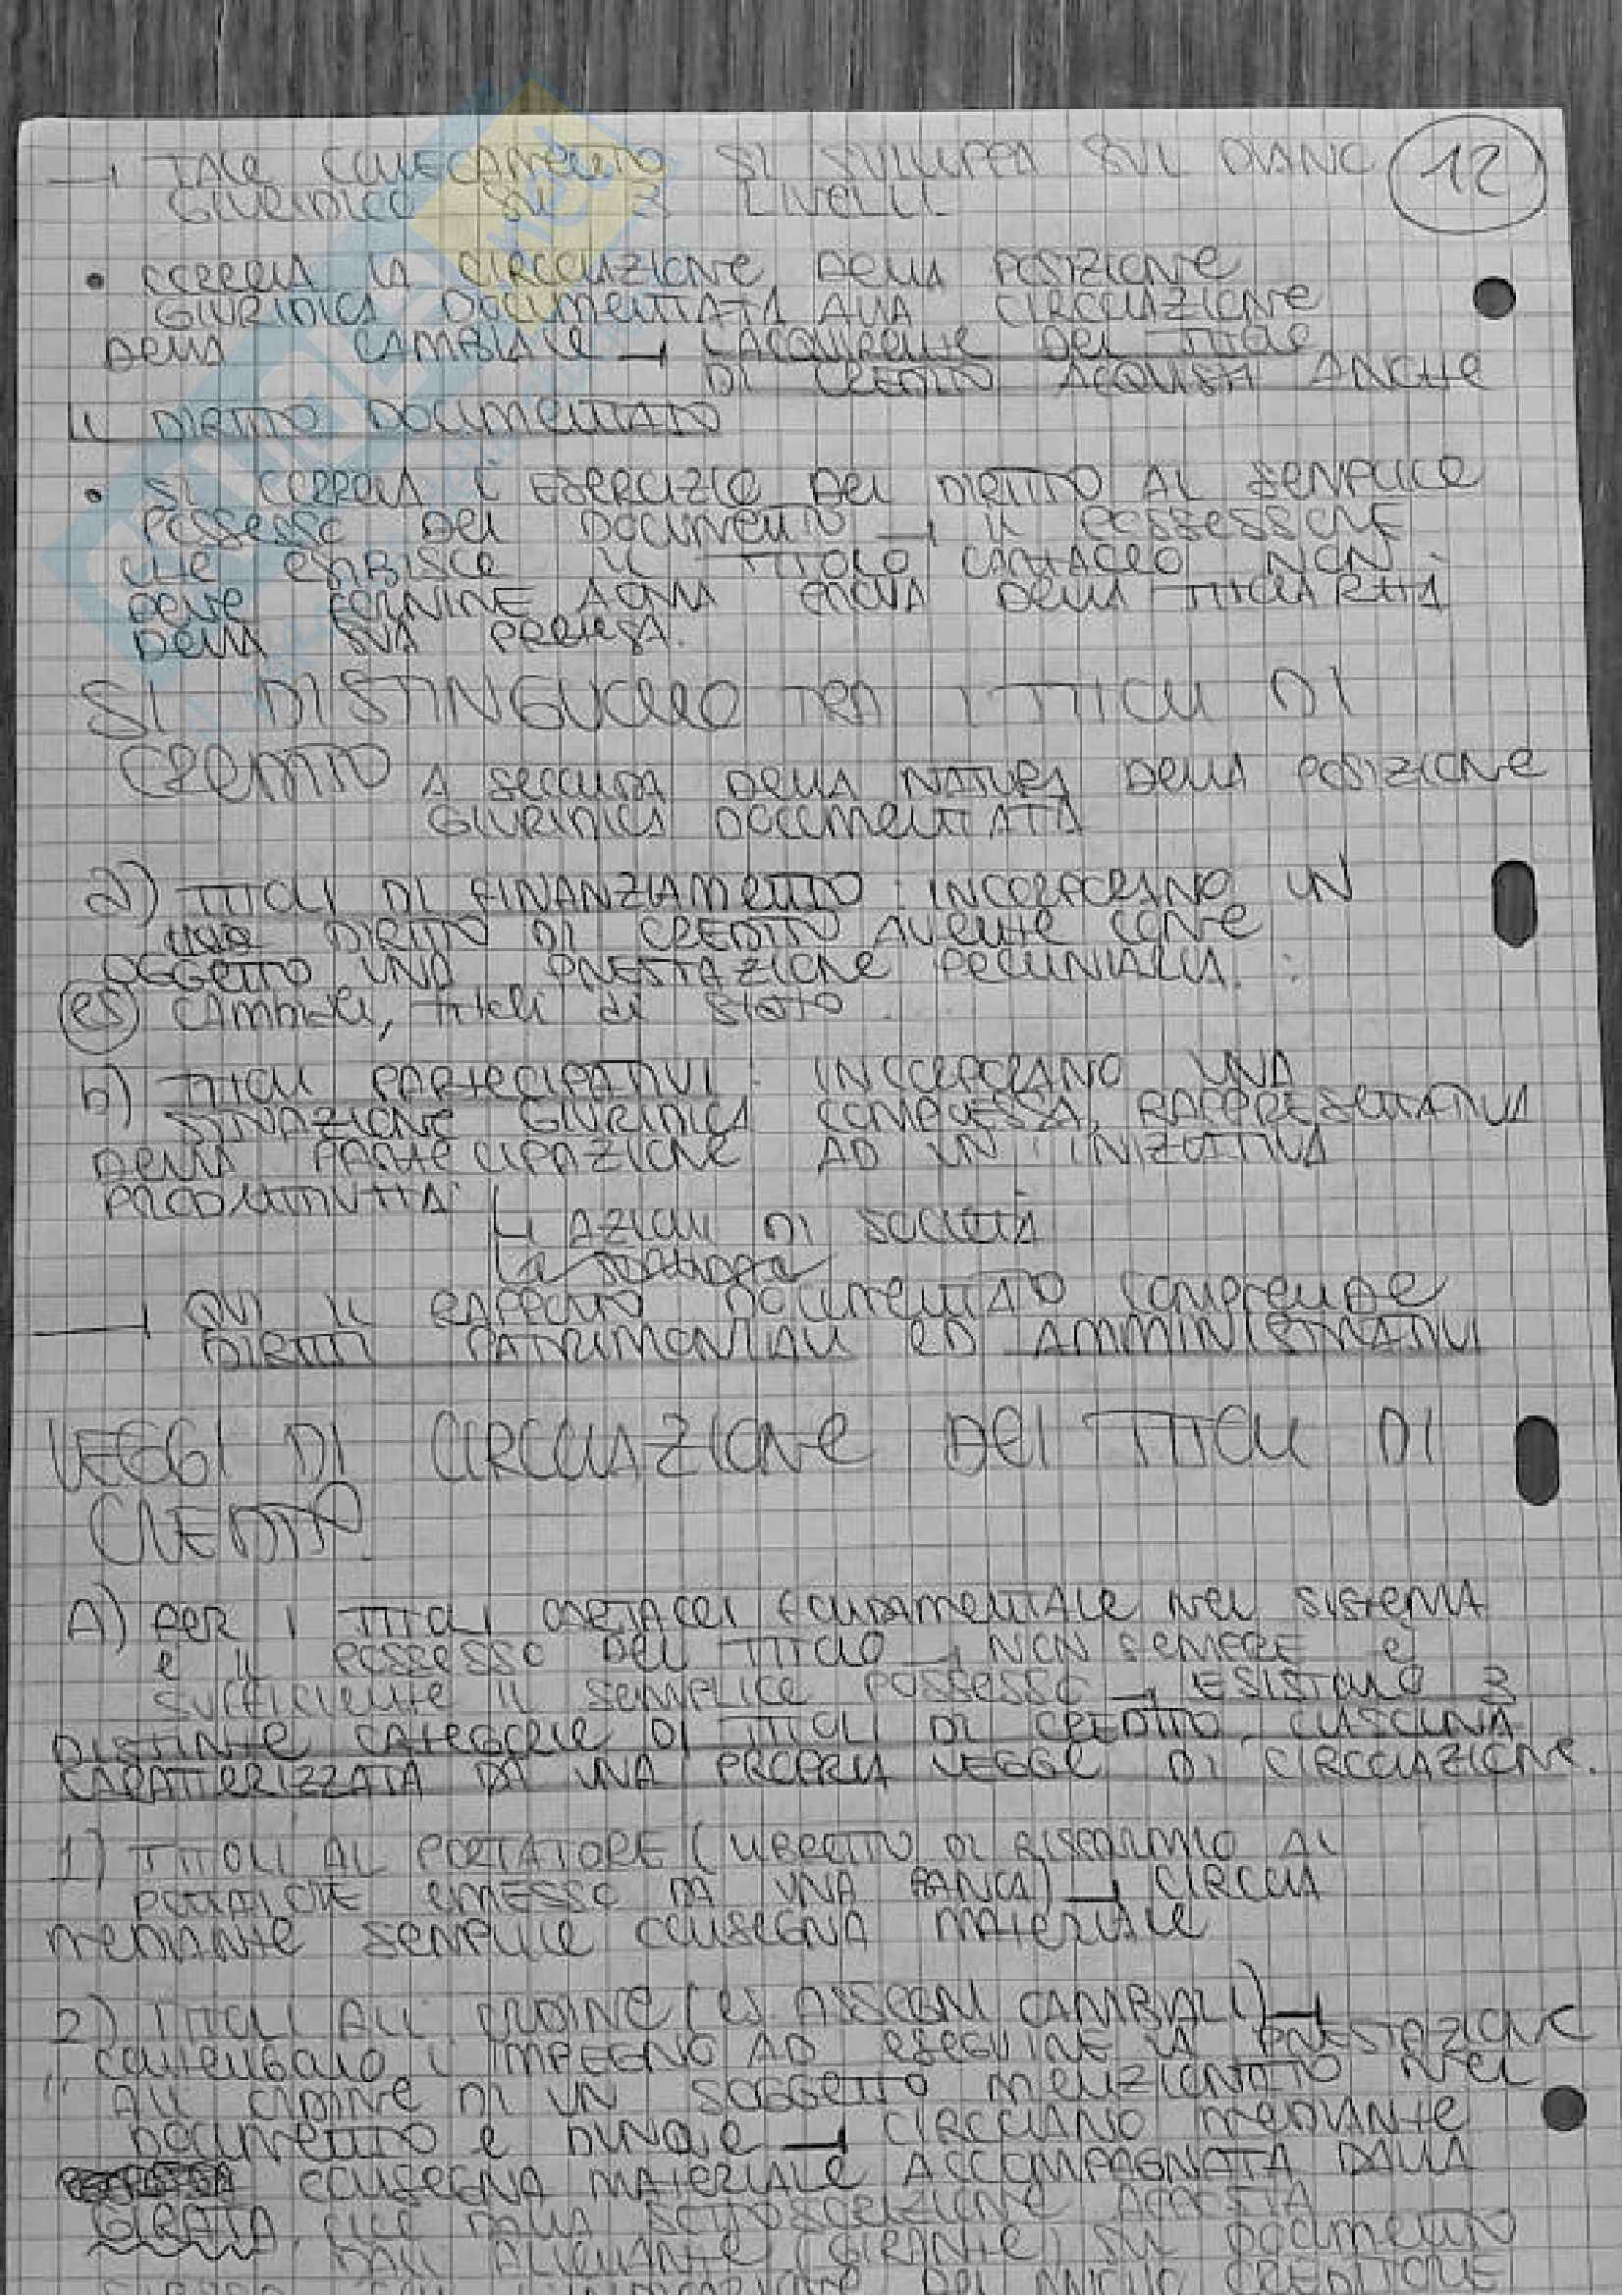 → TALE COLLEGAMENTO SI SVILUPPA SUL PIANO
12
GIURIDICO SU 2 LIVELLI
• CORRELA LA CIRCOLAZIONE DELLA POSIZIONE
GIURIDICA DOCUMENTATA ALLA CIRCOLAZIONE
DELLA CAMBIALE → L'ACQUIRENTE DEL TITOLO
DI CREDITO ACQUISTA ANCHE
IL DIRITTO DOCUMENTATO
• SI CORRELA L'ESERCIZIO DEL DIRITTO AL SEMPLICE
POSSESSO DEL DOCUMENTO → IL POSSESSORE
CHE ESIBISCE IL TITOLO CARTACEO NON
DEVE FORNIRE ALCUNA PROVA DELLA TITOLARITÀ
DELLA SUA PRETESA.
SI DISTINGUONO TRA I TITOLI DI
CREDITO A SECONDA DELLA NATURA DELLA POSIZIONE
GIURIDICA DOCUMENTATA
a) TITOLI DI FINANZIAMENTO: INCORPORANO UN
DIRITTO DI CREDITO AVENTE COME
OGGETTO UNA PRESTAZIONE PECUNIARIA.:
es CAMBIALI, titoli di stato
b) TITOLI PARTECIPATIVI: INCORPORANO UNA
SITUAZIONE GIURIDICA COMPLESSA, RAPPRESENTATIVA
DELLA PARTECIPAZIONE AD UN'INIZIATIVA
PRODUTTIVITÀ
↳ AZIONI DI SOCIETÀ
→ QUI IL RAPPORTO DOCUMENTATO COMPRENDE
DIRITTI PATRIMONIALI ED AMMINISTRATIVI
LEGGI DI CIRCOLAZIONE DEI TITOLI DI
CREDITO.
A) PER I TITOLI CARTACEI FONDAMENTALE NEL SISTEMA
È IL POSSESSO DEL TITOLO → NON SEMPRE È
SUFFICIENTE IL SEMPLICE POSSESSO → ESISTONO 3
DISTINTE CATEGORIE DI TITOLI DI CREDITO, CIASCUNA
CARATTERIZZATA DA UNA PROPRIA LEGGE DI CIRCOLAZIONE.
1) TITOLI AL PORTATORE (LIBRETTO DI RISPARMIO AL
PORTATORE EMESSO DA UNA BANCA) → CIRCOLA
MEDIANTE SEMPLICE CONSEGNA MATERIALE
2) TITOLI ALL'ORDINE (es. ASSEGNI CAMBIALI) →
CONTENGONO L'IMPEGNO AD ESEGUIRE LA PRESTAZIONE
"ALL'ORDINE DI UN SOGGETTO MENZIONATO NEL
DOCUMENTO E DUNQUE → CIRCOLANO MEDIANTE
CONSEGNA MATERIALE ACCOMPAGNATA DALLA
GIRATA, CIOÈ DALLA SOTTOSCRIZIONE APPOSTA
DALL'ALIENANTE (GIRANTE) SUL DOCUMENTO
DEL NUOVO CREDITORE